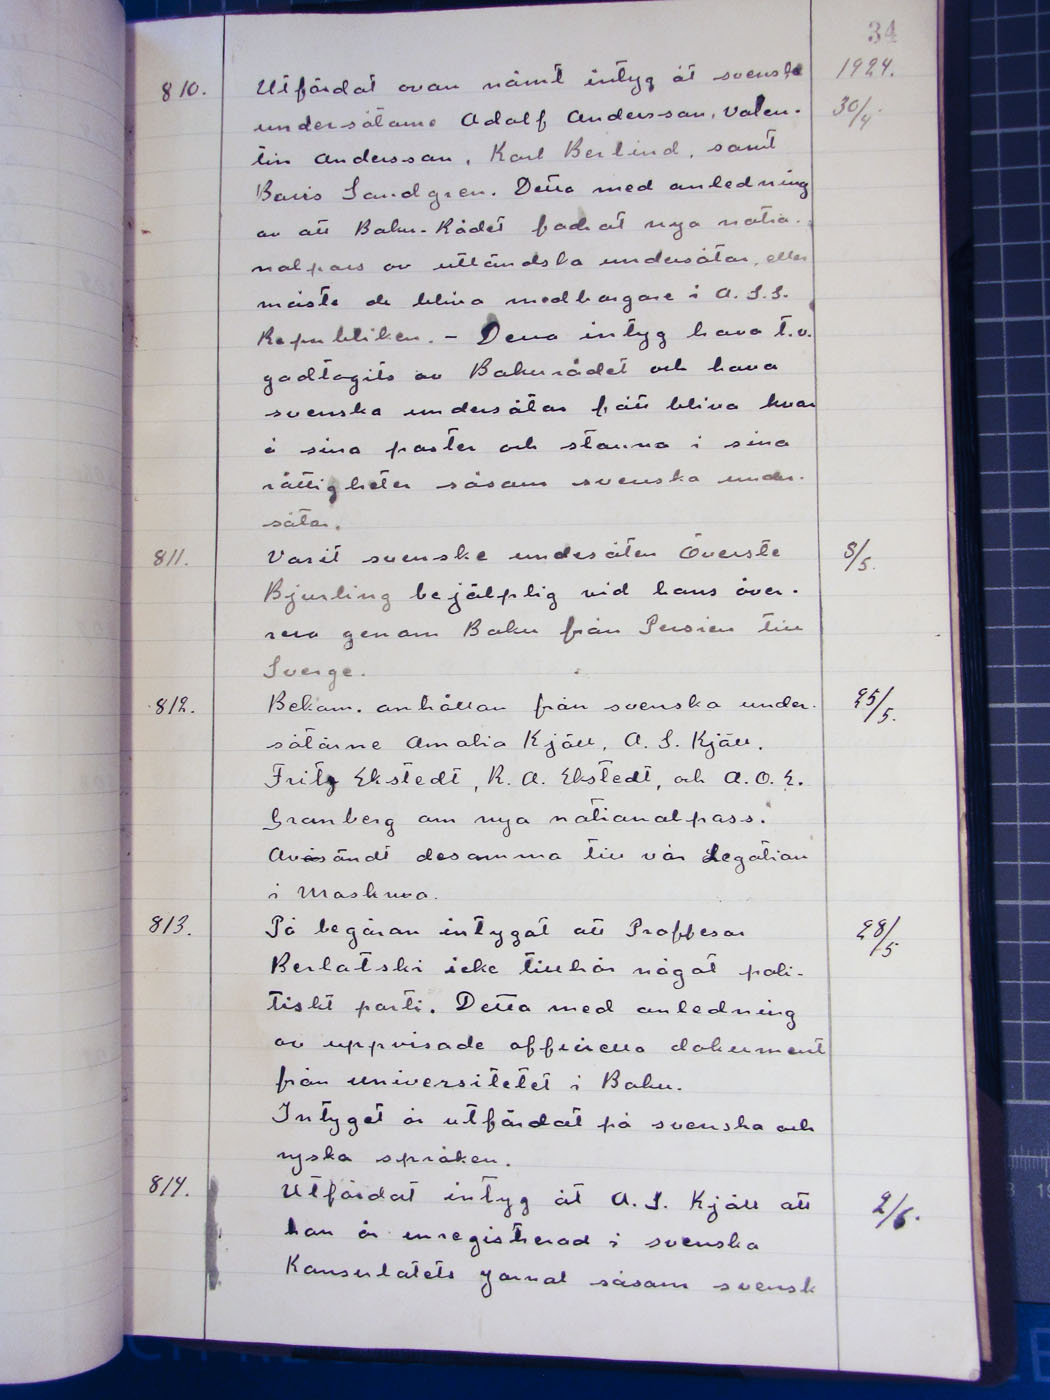 34
1924.
810. Utfärdat ovan nämt intyg åt svenska 30/4.
undersåtarne Adolf Andersson, Valen-
tin Andersson, Karl Berlind, samt
Boris Sandgren. Detta med anledning
av att Baku-Rådet fodrat nya natio-
nalpass av utländska undersåtar, eller
måste de bliva medborgare i A. S. S.
Republiken. - Dessa intyg hava t.v.
godtagits av Bakurådet och hava
svenska undersåtar fått bliva kvar
å sina poster och stanna i sina
rättigheter såsom svenska under-
såtar.
811. Varit svenske undesåten Överste 5/5.
Bjurling bejälplig vid hans över-
resa genom Baku från Persien till
Sverge.
812. Bekom. anhållan från svenska under- 25/5.
såtarne Amalia Kjäll, A. S. Kjäll,
Fritz Ekstedt, R. A. Ekstedt, och A. O. E.
Granberg om nya nationalpass.
Avsändt desamma till vår Legation
i Maskwa.
813. På begäran intygat att Proffesor 28/5
Berlatski icke tillhör något poli-
tiskt parti. Detta med anledning
av uppvisade officiella dokument
från universitetet i Baku.
Intyget är utfärdat på svenska och
ryska språken.
814. Utfärdat intyg åt A. S. Kjäll att 2/6.
han är inregistrerad i svenska
Konsulatets Jornal såsom svensk